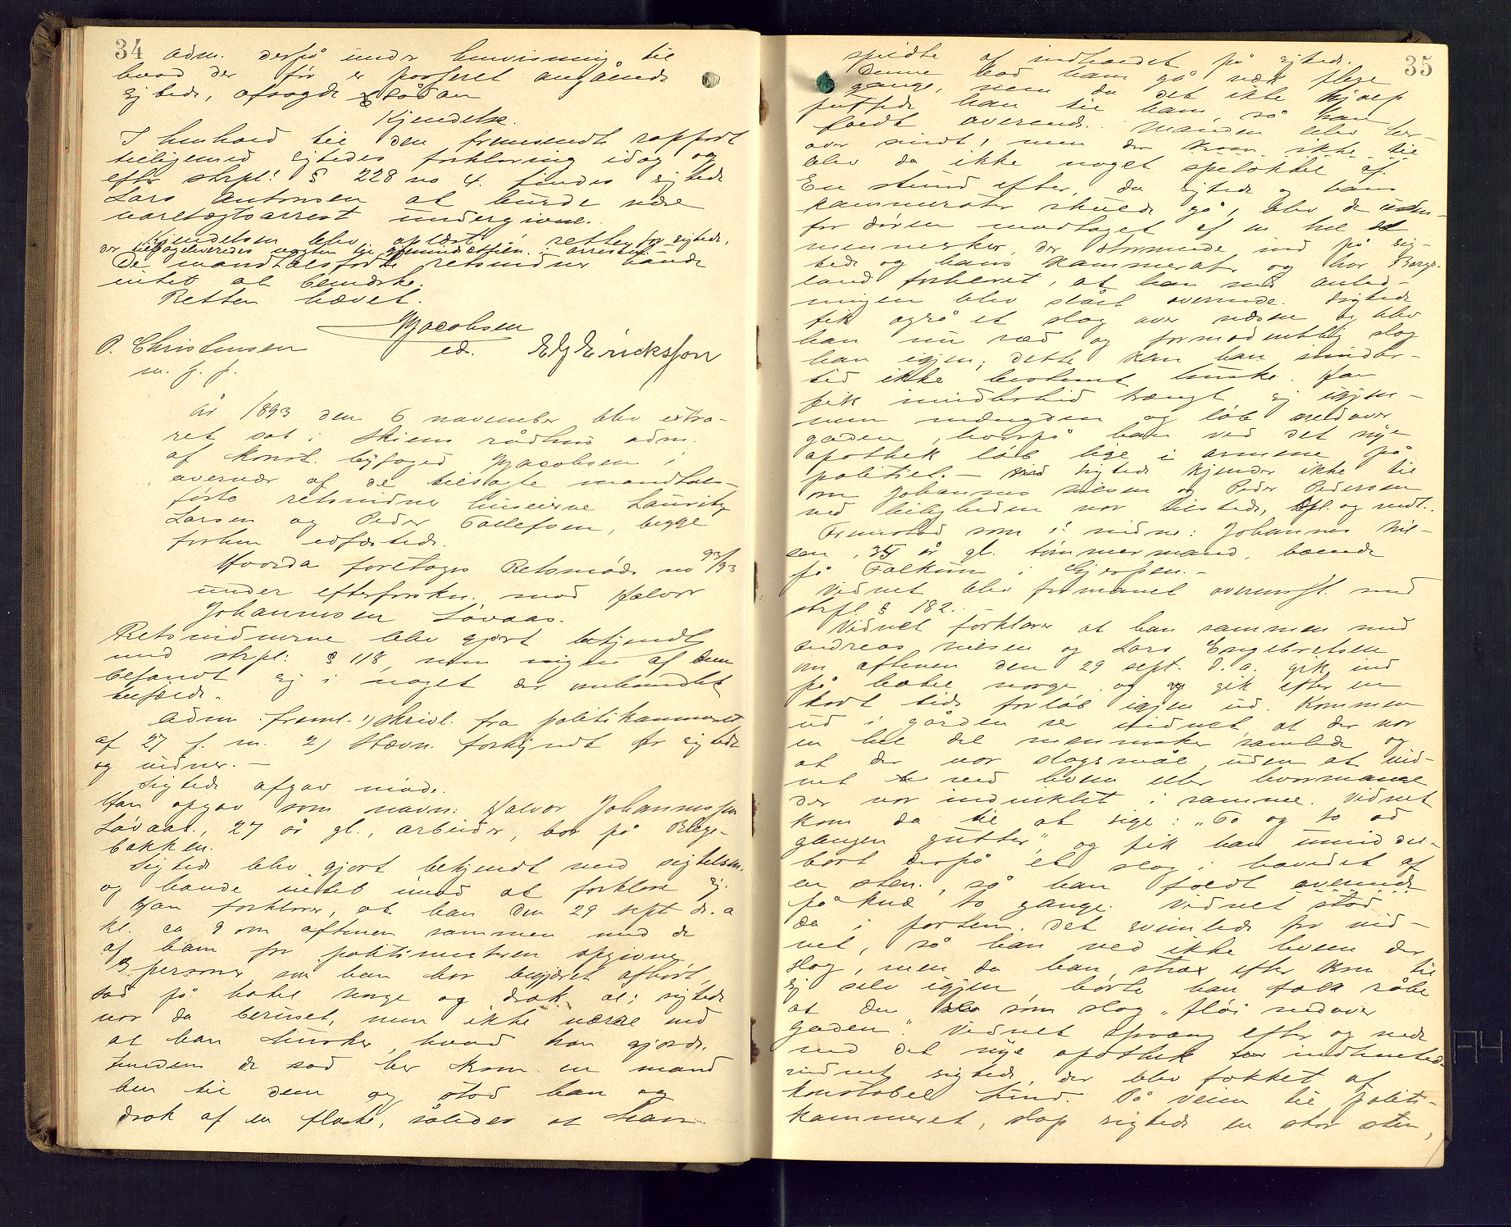 34
adm. derpå under henvisning til
hvad der før er passeret angående
sigtede, afsagde sådan
Kjendelse.
I henhold til den fremsendte rapport
tilligemed sigtedes forklaring idag og
efter strpl. § 228 no 4. findes sigtede
Lars Antonsen at burde være
varetægtsarrest undergiven.
Kjendelsen blev oplæst i retten for sigtede,
der tilbageleveredes vagten til gjenindsættelse i arresten.
De mandtalsførte retsvidner havde
intet at bemærke.
Retten hævet.
Jacobsen
P. Christensen ed. E G Ericksson
m. f. p.
År 1893 den 6 november blev extra-
ret sat i Skiens rådhus adm.
af konst. byfoged Jacobsen i
overvær af de tilsagte mandtals-
førte retsvidner huseierne Lauritz
Larsen og Peder Tollefsen, begge
forhen edfæstede.
Hvorda foretoges Retsmøde no 93/93
under efterforskn. mod Halvor
Johannessen Løvaas.
Retsvidnerne blev gjort bekjendt
med strpl. § 118, men ingen af dem
befandt sig i noget der omhandlet
tilfælde.
Adm. freml. 1) skrivl. fra politikammeret
af 27 f. m. 2) Stævn. forkyndt for sigtede
og vidner. —
Sigtede afgav møde.
Han opgav som navn: Halvor Johannessen
Løvaas, 27 år gl., arbeider, bor på Blege-
bakken.
Sigtede blev gjort bekjendt med sigtelsen,
og havde intet imod at forklare sig.
Han forklarer, at han den 29 sept. d. a
kl. ca 9 om aftenen sammen med de
af ham for politimesteren opgivne
3 personer, som han har begjæret afhørt,
sad på hotel Norge og drak øl; sigtede
var da beruset, men ikke værre end
at han husker, hvad han gjorde.
Medens de sad her kom en mand
hen til dem og stod han og
drak af en flaske, således at han
35
spildte af indholdet på sigtede.
Denne bad ham gå væk flere
gange, men da det ikke hjalp
puffede han til ham, så han
faldt overende. Manden blev her-
over sindt, men der kom ikke til
blev da ikke noget spetakkel af.
En stund efter, da sigtede og hans
kammerater skulde gå, blev de uden-
for døren modtaget af en hel del
mennesker der stormede ind på sig-
tede og hans kammerater og har Berge-
land forklaret, at han ved anled-
ningen blev slået overende. Sigtede
fik også et slag over næsen og blev
han nu ræd og formodentlig slog
han igjen; dette kan han imidler-
tid ikke bestemt huske. Han
fik imidlertid trængt sig igjen-
nem mængden og løb nedover
gaden, hvorpå han ved det nye
apothek løb lige i armene på
politiet. — Sigtede kjender ikke til
om Johannes Nilsen og Peder Pedersen
ved leiligheden var tilstede, Opl. og vedt.
Fremstod som 1' vidne: Johannes Nil-
sen, 35 år gl. tømmermand, boende
på Falkum i Gjerpen. —
Vidnet blev formanet overensst. med
strpl. § 182.
Vidnet forklarer at han sammen med
Andreas Nilsen og Lars Engebretsen
om aftenen den 29 sept. d. a. gik ind
på hotel Norge og gik efter en
kort tids forløb igjen ud. Kommen
ud i gården ser vidnet, at der var
en hel del mennesker samlede og
at der var slagsmål, uden at vid-
net ved hvem eller hvormange
der var indviklet i samme. Vidnet
kom da til at sige: „To og to ad
gangen gutter", og fik han umiddel-
bart derpå et slag i hovedet af
en sten, så han faldt overende
på knæ to gange. Vidnet stod
da i porten. Det svimlede for vid-
net, så han ved ikke hvem der
slog, men da han strax efter kom til
sig selv igjen hørte han folk råbe
at den som slog „fløi nedover
gaden". Vidnet sprang efter og nede
ved det nye apothek indhentede
vidnet sigtede, der blev pakket af
konstabel Lund. På veien til politi-
kammeret, slap sigtede en stor sten,